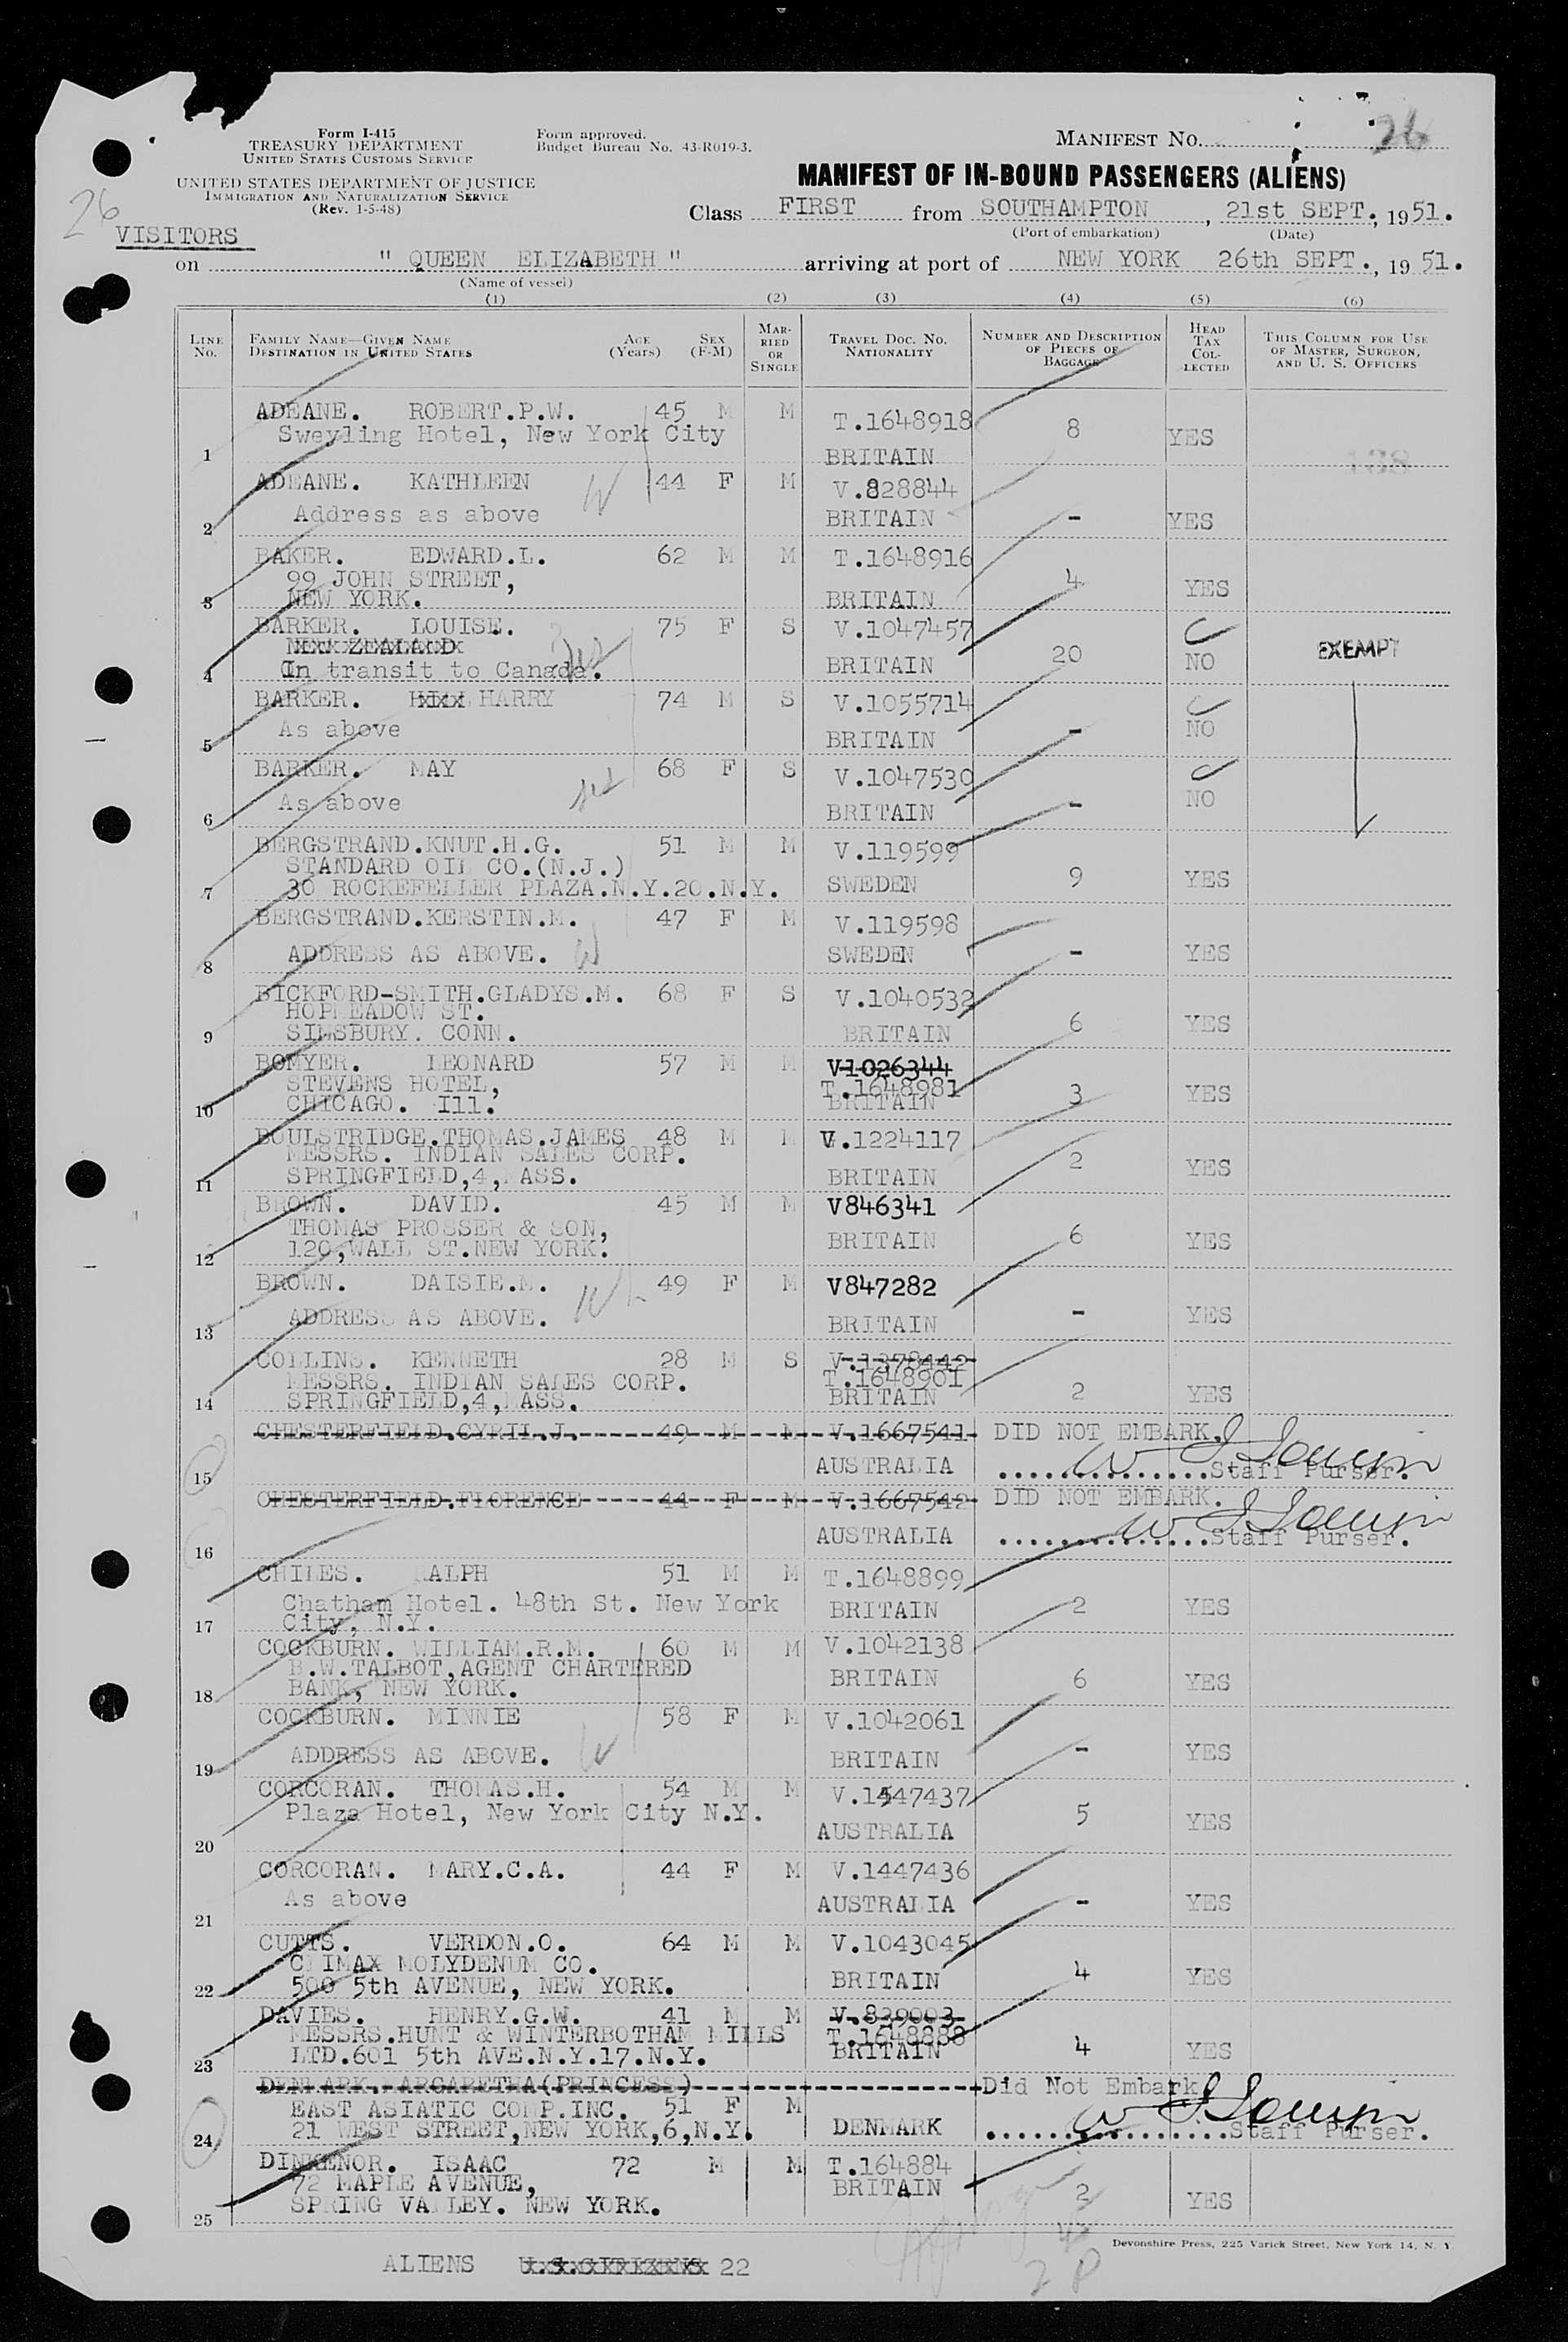 Form I-415
TREASURY DEPARTMENT
UNITED STATES CUSTOMS SERVICE
UNITED STATES DEPARTMENT OF JUSTICE
IMMIGRATION AND NATURALIZATION SERVICE
(Rev. 1-5-48)
Form approved.
Budget Bureau No. 43-R019-3.
MANIFEST NO. 26
MANIFEST OF IN-BOUND PASSENGERS (ALIENS)
Class FIRST from SOUTHAMPTON, 21st SEPT., 1951.
(Port of embarkation) (Date)
26
VISITORS
on " QUEEN ELIZABETH " arriving at port of NEW YORK 26th SEPT., 1951.
(Name of vessel)
(1) (2) (3) (4) (5) (6)
LINE No. FAMILY NAME—GIVEN NAME DESTINATION IN UNITED STATES AGE (Years) SEX (F-M) MARRIED OR SINGLE TRAVEL DOC. NO. NATIONALITY NUMBER AND DESCRIPTION OF PIECES OF BAGGAGE HEAD TAX COLLECTED THIS COLUMN FOR USE OF MASTER, SURGEON, AND U. S. OFFICERS
ADEANE. ROBERT.P.W. 45 M M T.1648918 8 YES
Sweyling Hotel, New York City
1 BRITAIN
138
ADEANE. KATHLEEN 44 F M V.828844
Address as above BRITAIN - YES
2
BAKER. EDWARD.L. 62 M M T.1648916
99 JOHN STREET, 4 YES
3 NEW YORK. BRITAIN
BARKER. LOUISE. 75 F S V.1047457
NEW ZEALAND 20 NO EXEMPT
4 In transit to Canada. BRITAIN
BARKER. HARRY 74 M S V.1055714
As above - NO
5 BRITAIN
BARKER. MAY 68 F S V.1047530
As above - NO
6 BRITAIN
BERGSTRAND.KNUT.H.G. 51 M M V.119599
STANDARD OIL CO.(N.J.) 9 YES
7 30 ROCKEFELLER PLAZA.N.Y.20.N.Y. SWEDEN
BERGSTRAND.KERSTIN.M. 47 F M V.119598
ADDRESS AS ABOVE. SWEDEN - YES
8
BICKFORD-SMITH.GLADYS.M. 68 F S V.1040532
HOPMEADOW ST. 6 YES
9 SIMSBURY. CONN. BRITAIN
BOMYER. LEONARD 57 M M V1026344
STEVENS HOTEL, T.1648981 3 YES
10 CHICAGO. Ill. BRITAIN
BOULSTRIDGE.THOMAS.JAMES 48 M M V.1224117
MESSRS. INDIAN SALES CORP. 2 YES
11 SPRINGFIELD,4,MASS. BRITAIN
BROWN. DAVID. 45 M M V846341
THOMAS PROSSER & SON, 6 YES
12 120,WALL ST.NEW YORK. BRITAIN
BROWN. DAISIE.M. 49 F M V847282
ADDRESS AS ABOVE. - YES
13 BRITAIN
COLLINS. KENNETH 28 M S V.1378442
MESSRS. INDIAN SALES CORP. T.1648901
14 SPRINGFIELD,4,MASS. BRITAIN 2 YES
CHESTERFIELD.CYRIL.J. 49 M M V.1667541 DID NOT EMBARK.
15 AUSTRALIA Staff Purser.
CHESTERFIELD.FLORENCE 44 F M V.1667542 DID NOT EMBARK.
16 AUSTRALIA Staff Purser.
CHILES. RALPH 51 M M T.1648899
Chatham Hotel. 48th St. New York BRITAIN 2 YES
17 City, N.Y.
COCKBURN. WILLIAM.R.M. 60 M M V.1042138
B.W.TALBOT,AGENT CHARTERED BRITAIN 6 YES
18 BANK, NEW YORK.
COCKBURN. MINNIE 58 F M V.1042061
ADDRESS AS ABOVE. BRITAIN - YES
19
CORCORAN. THOMAS.H. 54 M M V.1447437
Plaza Hotel, New York City N.Y. 5 YES
20 AUSTRALIA
CORCORAN. MARY.C.A. 44 F M V.1447436
As above AUSTRALIA - YES
21
CUTTS. VERDON.O. 64 M M V.1043045
CLIMAX MOLYDENUM CO. 4 YES
22 500 5th AVENUE, NEW YORK. BRITAIN
DAVIES. HENRY.G.W. 41 M M V.839003
MESSRS.HUNT & WINTERBOTHAM MILLS T.1648888
23 LTD.601 5th AVE.N.Y.17.N.Y. BRITAIN 4 YES
DENMARK.MARGARETHA(PRINCESS) Did Not Embark
EAST ASIATIC COMP.INC. 51 F M
24 21 WEST STREET,NEW YORK,6,N.Y. DENMARK Staff Purser.
DINKENOR. ISAAC 72 M M T.164884
72 MAPLE AVENUE, BRITAIN 2 YES
25 SPRING VALLEY. NEW YORK.
Devonshire Press, 225 Varick Street, New York 14, N. Y.
ALIENS U.S.CITIZENS 22